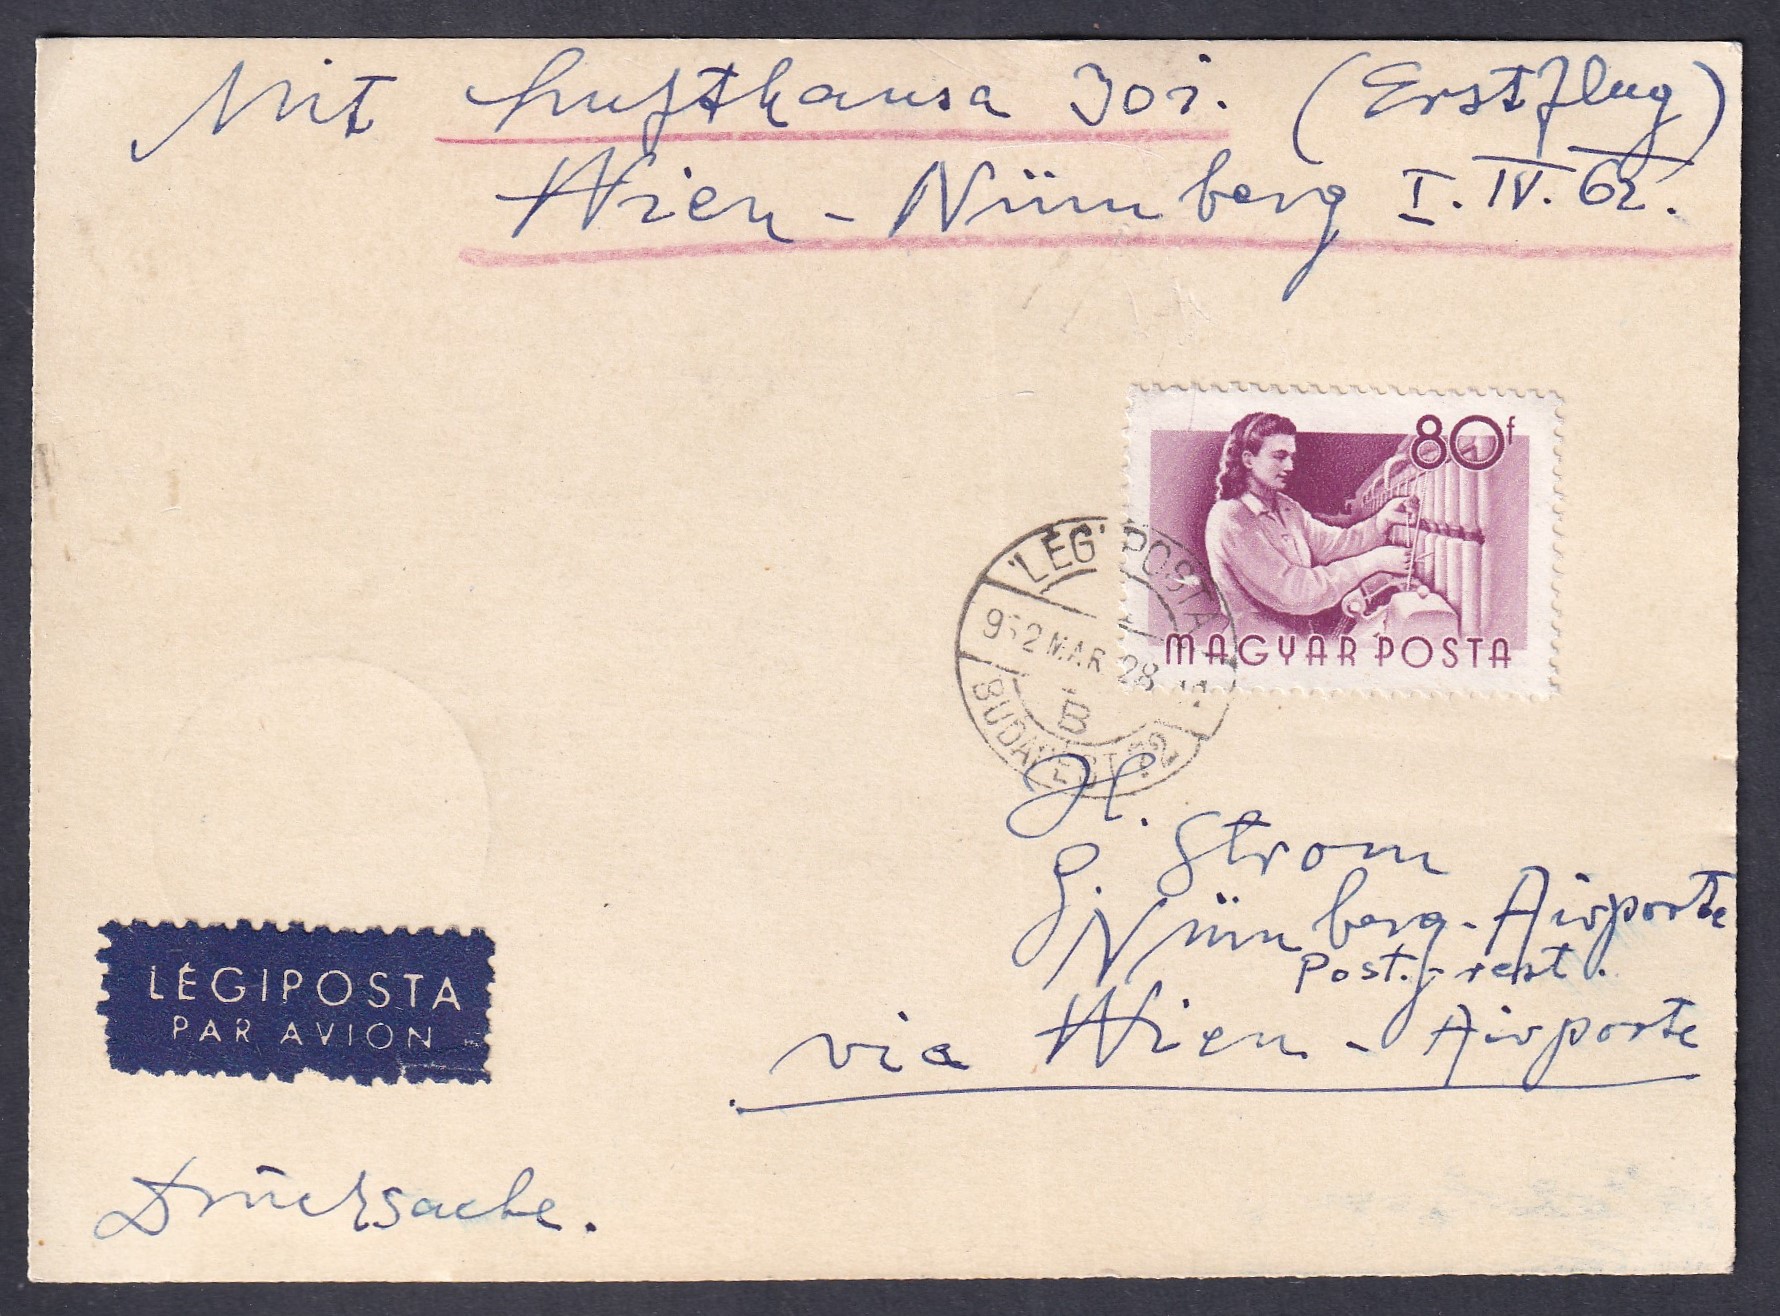 Mit Lufthansa 301. (Erstflug)
Wien - Nürnberg I. IV. 62.
80f
MAGYAR POSTA
LÉGI POSTA
962 MAR 28
B
BUDAPEST 72
H.
G. Strom
Nürnberg-Airporte
Post.-rest.
via Wien - Airporte
LÉGIPOSTA
PAR AVION
Drücksache.